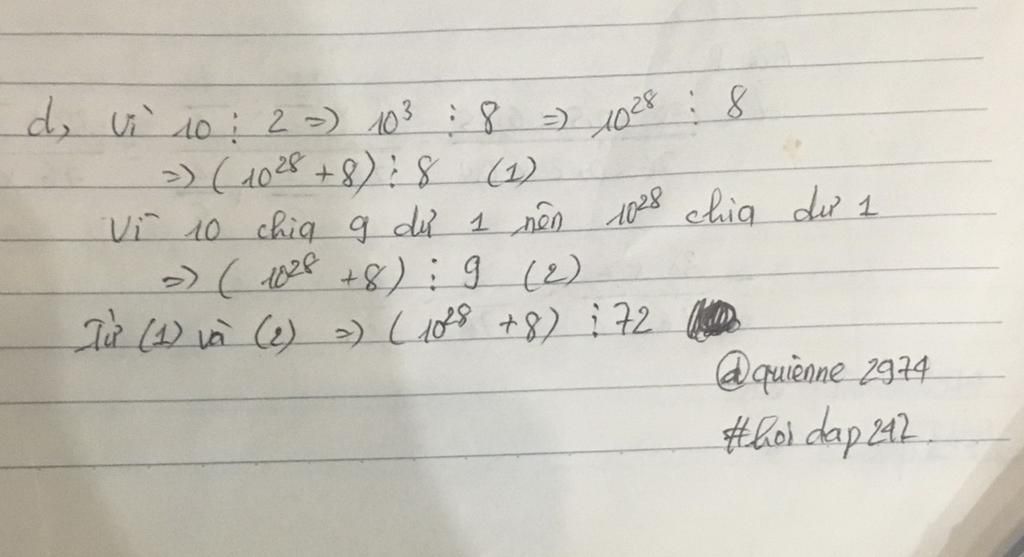 d, Vì 10 ⋮ 2 => 10³ ⋮ 8 => 10²⁸ ⋮ 8
=> (10²⁸ + 8) ⋮ 8 (1)
Vì 10 chia 9 dư 1 nên 10²⁸ chia dư 1
=> (10²⁸ + 8) ⋮ 9 (2)
Từ (1) và (2) => (10²⁸ + 8) ⋮ 72
@quiènne 2974
#hoi dap 247.